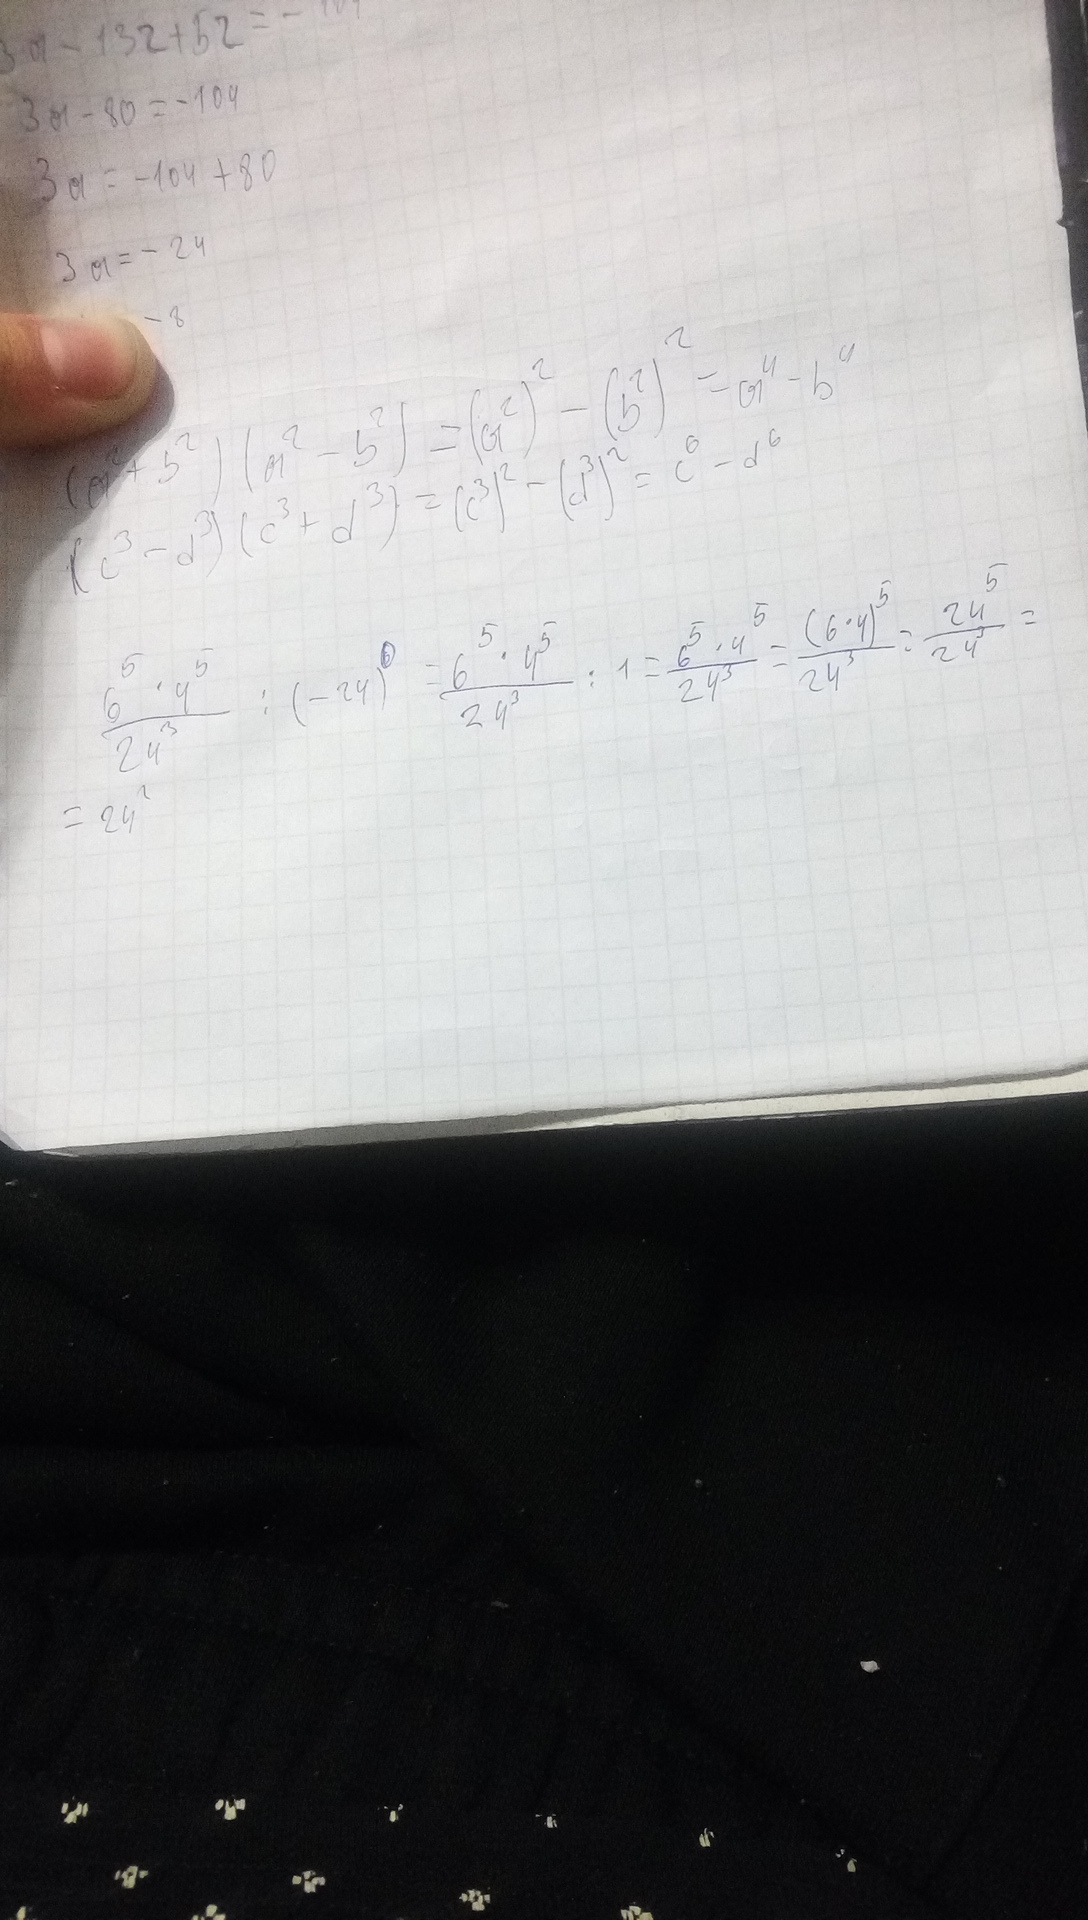 3a - 132 + 52 = - 104
3a - 80 = -104
3a = -104 + 80
3a = - 24
-8
(a² + b²) (a² - b²) = (a²)² - (b²)² = a⁴ - b⁴
(c³ - d³) (c³ + d³) = (c³)² - (d³)² = c⁶ - d⁶
6⁵ · 4⁵ / 24³ : (-24)⁰ = 6⁵ · 4⁵ / 24³ : 1 = 6⁵ · 4⁵ / 24³ = (6·4)⁵ / 24³ = 24⁵ / 24³ =
= 24²